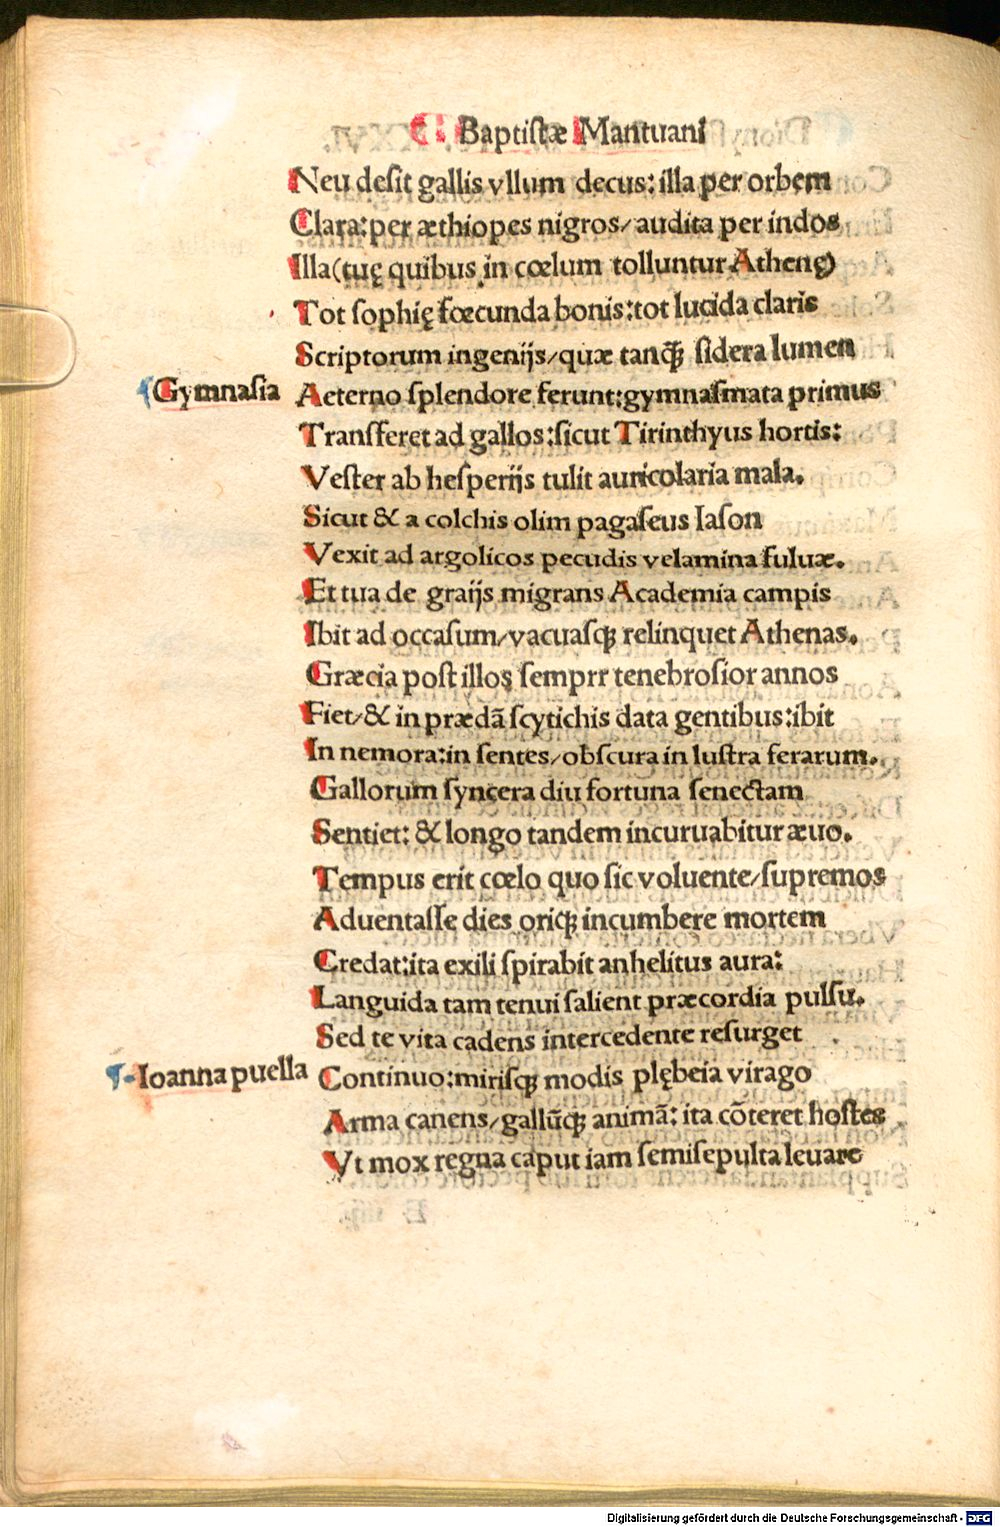 ¶ Baptistæ Mantuani
Neu deſit gallis vllum decus: illa per orbem
Clara: per æthiopes nigros/ audita per indos
Illa (tuę quibus in cœlum tolluntur Athenę)
Tot ſophię fœcunda bonis: tot lucida claris
Scriptorum ingenijs/ quæ tanq̃ ſidera lumen
Gymnaſia
Aeterno ſplendore ferunt: gymnaſmata primus
Tranſferet ad gallos: ſicut Tirinthyus hortis:
Veſter ab heſperijs tulit auricolaria mala.
Sicut & a colchis olim pagaſeus Iaſon
Vexit ad argolicos pecudis velamina fuluæ.
Et tua de graijs migrans Academia campis
Ibit ad occaſum/ vacuaſq; relinquet Athenas.
Græcia poſt illos ſemprr tenebroſior annos
Fiet/ & in prædã ſcytichis data gentibus: ibit
In nemora: in ſentes/ obſcura in luſtra ferarum.
Gallorum ſyncera diu fortuna ſenectam
Sentiet: & longo tandem incuruabitur æuo.
Tempus erit cœlo quo ſic voluente/ ſupremos
Aduentaſſe dies oriq; incumbere mortem
Credat: ita exili ſpirabit anhelitus aura:
Languida tam tenui ſalient præcordia pulſu.
Sed te vita cadens intercedente reſurget
Ioanna puella
Continuo: miriſq; modis plębeia virago
Arma canens/ gallũq; animã: ita cõteret hoſtes
Vt mox regna caput iam ſemiſepulta leuare
Digitalisierung gefördert durch die Deutsche Forschungsgemeinschaft - DFG